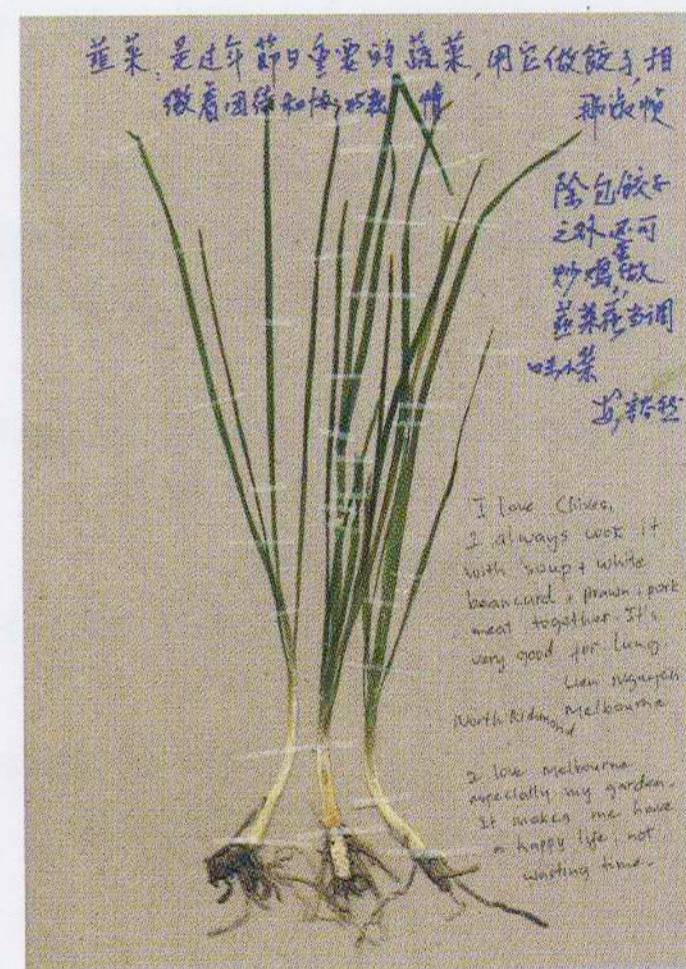 韮菜,是过年節日重要的蔬菜,用它做餃子,相
着团结和
除包餃子
之外还可
炒鸡蛋,做
韮菜 当调
味小菜
I love Chives,
I always cook it
with soup + white
beancurd + prawn + pork
meat together. It's
very good for lung.
Lien Nguyen
North Richmond Melbourne
I love Melbourne
especially my garden.
It makes me have
a happy life, not
wasting time.